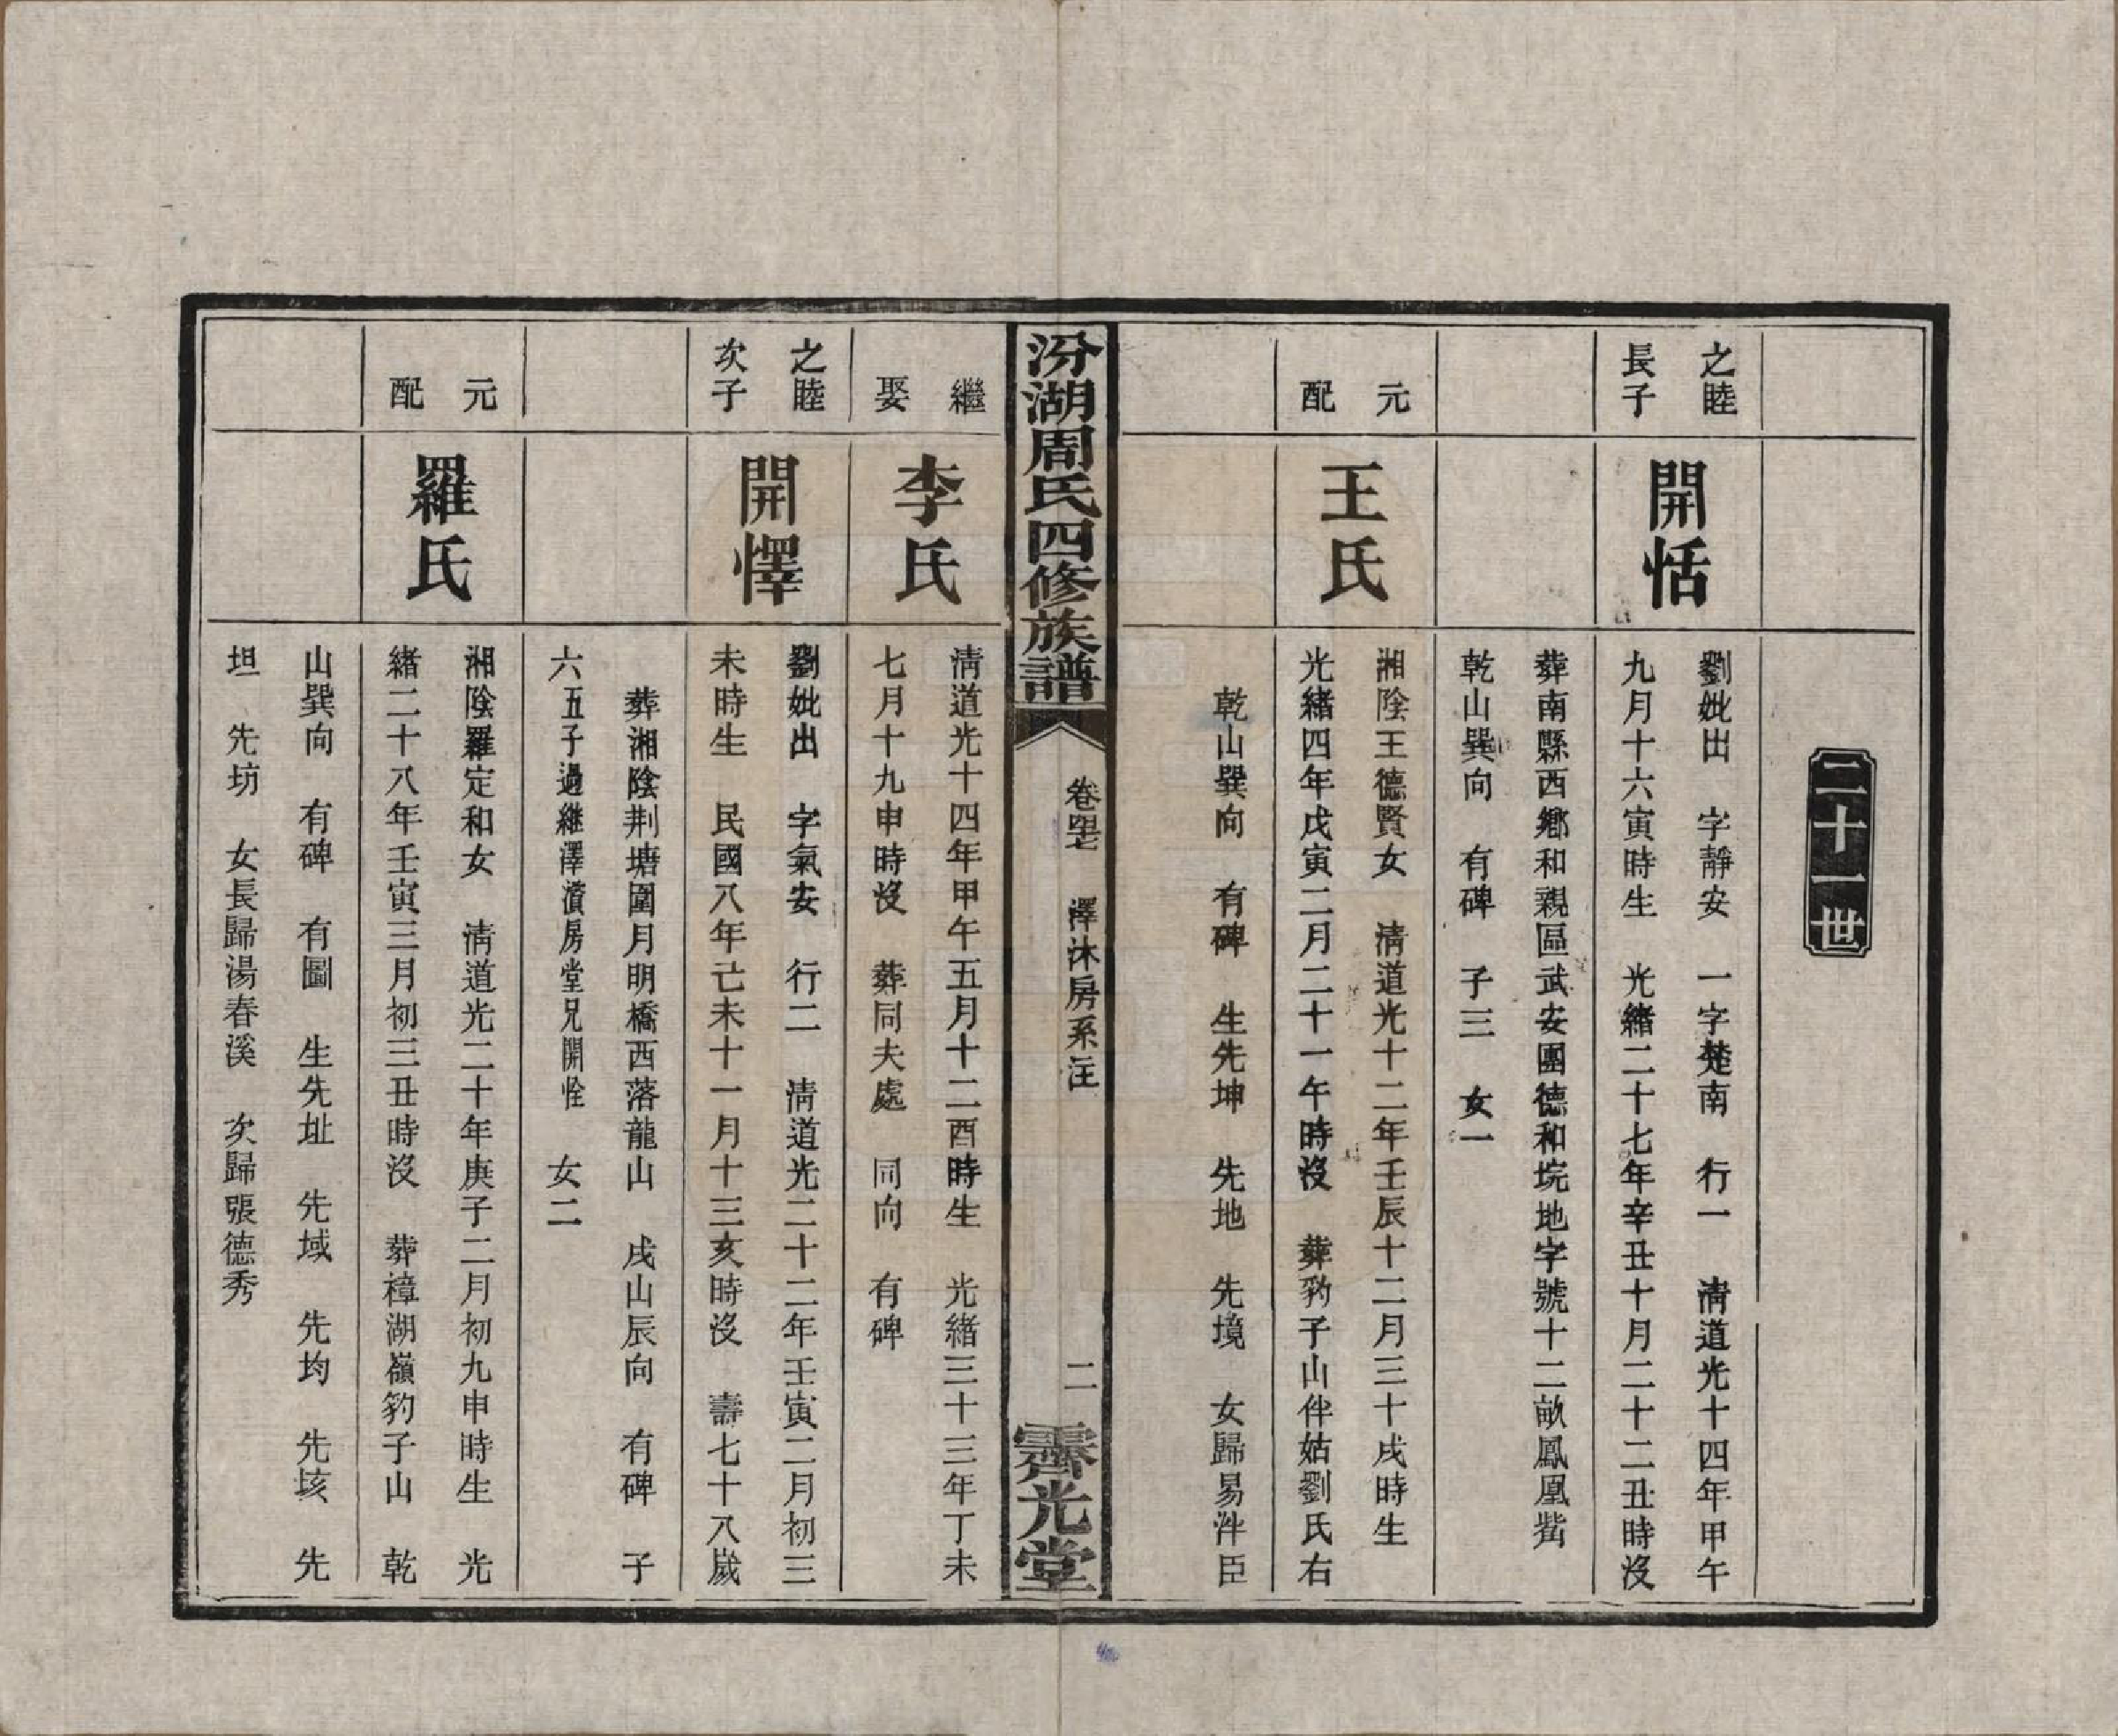 二十一世
之睦
長子
開恬
劉妣出　字靜安　一字楚南　行一　清道光十四年甲午
九月十六寅時生　光緒二十七年辛丑十月二十二丑時沒
葬南縣西鄉和親區武安團德和垸地字號十二畝鳳凰嘴
乾山巽向　有碑　子三　女一
元
配
王氏
湘陰王德賢女　清道光十二年壬辰十二月三十戌時生
光緒四年戊寅二月二十一午時沒　葬豹子山伴姑劉氏右
乾山巽向　有碑　生先坤　先地　先境　女歸易泮臣
汾湖周氏四修族譜
卷四七　澤沐房系注
二
霽光堂
繼
娶
李氏
清道光十四年甲午五月十二酉時生　光緒三十三年丁未
七月十九申時沒　葬同夫處　同向　有碑
之睦
次子
開懌
劉妣出　字氣安　行二　清道光二十二年壬寅二月初三
未時生　民國八年己未十一月十三亥時沒　壽七十八歲
葬湘陰荆塘圍月明橋西落龍山　戌山辰向　有碑　子
六五子過繼澤濆房堂兄開恮　女二
元
配
羅氏
湘陰羅定和女　清道光二十年庚子二月初九申時生　光
緒二十八年壬寅三月初三丑時沒　葬樟湖嶺豹子山　乾
山巽向　有碑　有圖　生先址　先域　先均　先垓　先
坦　先坊　女長歸湯春溪　次歸張德秀